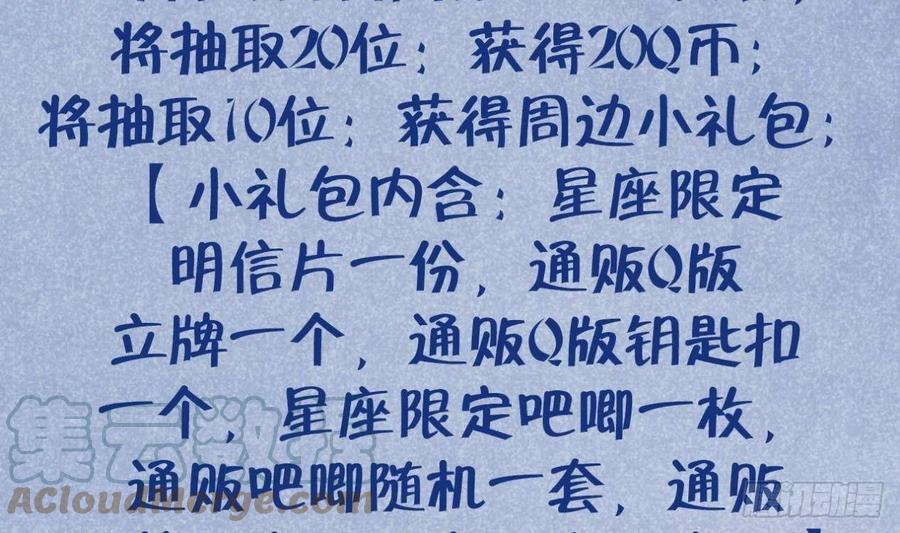 将抽取20位；获得200Q币；
将抽取10位；获得周边小礼包；
【小礼包内含；星座限定
明信片一份，通贩Q版
立牌一个，通贩Q版钥匙扣
一个，星座限定吧唧一枚，
集云数程
通贩吧唧随机一套，通贩
ACloudMerge.com